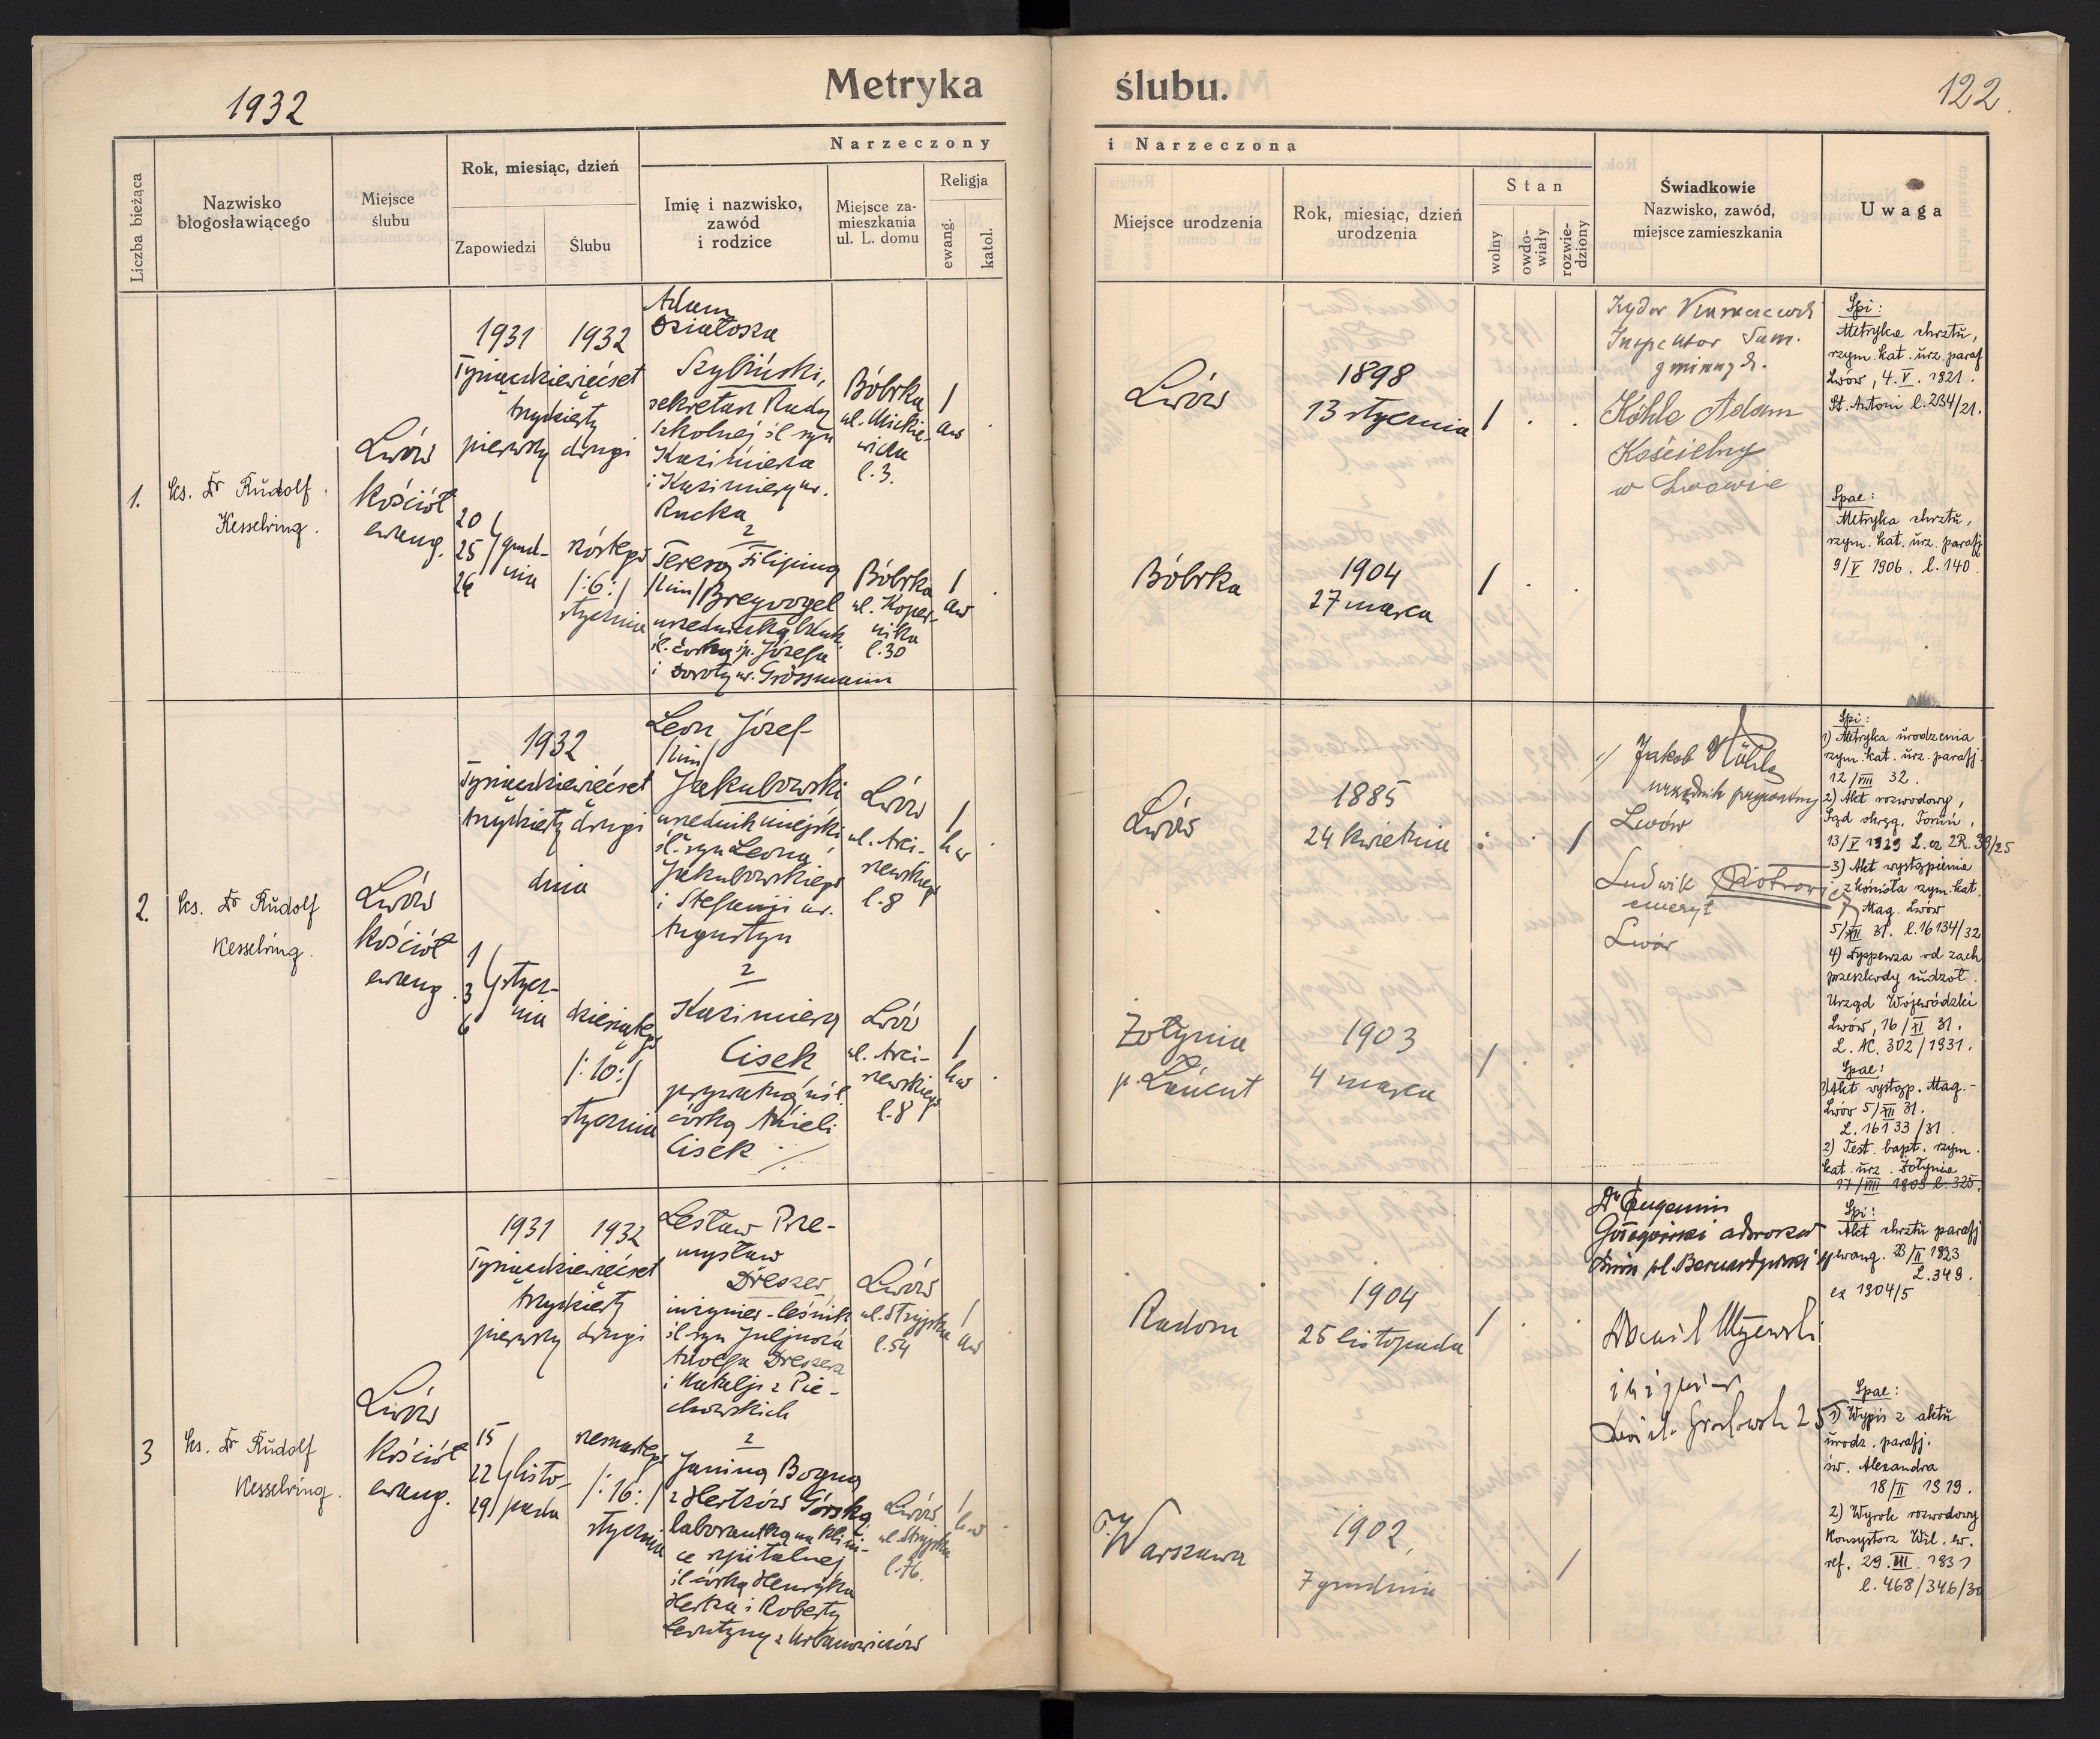 1932
Metryka ślubu.
122.
Liczba bieżąca
Nazwisko
błogosławiącego
Miejsce
ślubu
Rok, miesiąc, dzień
Zapowiedzi
Ślubu
Narzeczony i Narzeczona
Imię i nazwisko,
zawód
i rodzice
Miejsce za-
mieszkania
ul. L. domu
Religja
ewang.
katol.
Miejsce urodzenia
Rok, miesiąc, dzień
urodzenia
Stan
wolny
owdo-
wiały
rozwie-
dziony
Świadkowie
Nazwisko, zawód,
miejsce zamieszkania
Uwaga
1.
ks. Dr Rudolf
Kesselring.
Lwów
kościół
ewang.
1931 1932
Tysiącdziewięćset
trzydzieści
pierwszy drugi
20
25 grud-
26 nia
szóstego
/:6:/
stycznia
Adam
Szybiński,
sekretarz Rady
szkolnej śl. syn
Kazimierza
i Kazimiery ur.
Rucka
Bóbrka
ul. Mickie-
wicza
l. 3.
1
aw
Lwów
1898
13 stycznia
1
z
Teresa Filipina
/2 im/ Breyvogel
śl. córka śp. Józefa
i Doroty ur. Grössmann
Bóbrka
ul. Koper-
nika
l. 30
1
aw
Bóbrka
1904
27 marca
1
Inspektor Sam.
gminnych.
Köhle Adam
Kościelny
w Lwowie
Spi:
Metryka chrztu,
rzym. kat. urz. paraf
Lwów, 4. V. 1921.
St. Antoni l. 234/21.
Spae:
Metryka chrztu,
rzym. kat. urz. parafj
9/V 1906. l. 140.
2.
ks. Dr Rudolf
Kesselring.
Lwów
kościół
ewang.
1932
Tysiącdziewięćset
trzydzieści drugi
dnia
1
3 stycz-
6 nia
dziesiątego
/:10:/
stycznia
Leon Józef
/2 im/
Jakubowski
urzednik miejski
śl. syn Leona
Jakubowskiego
i Stefanji ur.
Augustyn
Lwów
ul. Arci-
szewskiego
l. 8
1
hw
Lwów
1885
24 kwietnia
1
z
Kazimiera
Cisek
córka Anieli
Cisek
Lwów
ul. Arci-
szewskiego
l. 8
1
hw
Żołynia
p. Łańcut
1903
4 marca
1
1/ Jakob Köhle
urzędnik prywatny
Lwów
Ludwik
emeryt
Lwów
Spi:
1) Metryka urodzenia
rzym. kat. urz. parafj.
12/VIII 32.
2) Akt rozwodowy,
Sąd okręg. Toruń,
13/V 1929 L. cz. 2R. 39/25
3) Akt wystąpienia
z kościoła rzym. kat.
Mag. Lwów
5/XII 31. l. 16134/32
4) Dyspenza od zach
przeszkody
Urząd Wojewódzki
Lwów, 16/XI 31.
L. AC. 302/1931.
Spae:
1) Akt wystąp. Mag.-
Lwów 5/XII 31.
L. 16133/31.
2) Test. bapt. rzym.
kat. urz. Żołynia
17/VIII 1903 l. 325.
3
ks. Dr Rudolf
Kesselring.
Lwów
kościół
ewang.
1931 1932
Tysiącdziewięćset
trzydzieści
pierwszy drugi
15
22 listo-
29 pada
szesnastego
/:16:/
stycznia
Lesław Prze-
mysław
Dreszer,
inżynier-leśnik
śl. syn Juljusza
Adolfa Dreszera
i Natalji z Pie-
chowskich
Lwów
ul. Stryjska
l. 54
1
aw
Radom
1904
25 listopada
1
z
Janina Bogna
z Hertzów Górska
laborantka na klini-
ce szpitalnej
śl. córka Henryka
Hertza i Roberty
Leontyny z Urbanowiczów
Lwów
ul. Stryjska
l. 76.
1
hw
Warszawa
1902,
7 grudnia
1
Dr Eugenius
adwokat
Lwów pl. Bernardyński
inżynier
Spi:
Akt chrztu parafj
ewang. 23/II 1923
L. 349.
ex 1904/5
Spae:
1) Wypis z aktu
urodz. parafj.
św. Alexandra
18/II 1919.
2) Wyrok rozwodowy
Konsystorz Wil. ew.
ref. 29. III. 1931
l. 468/346/30